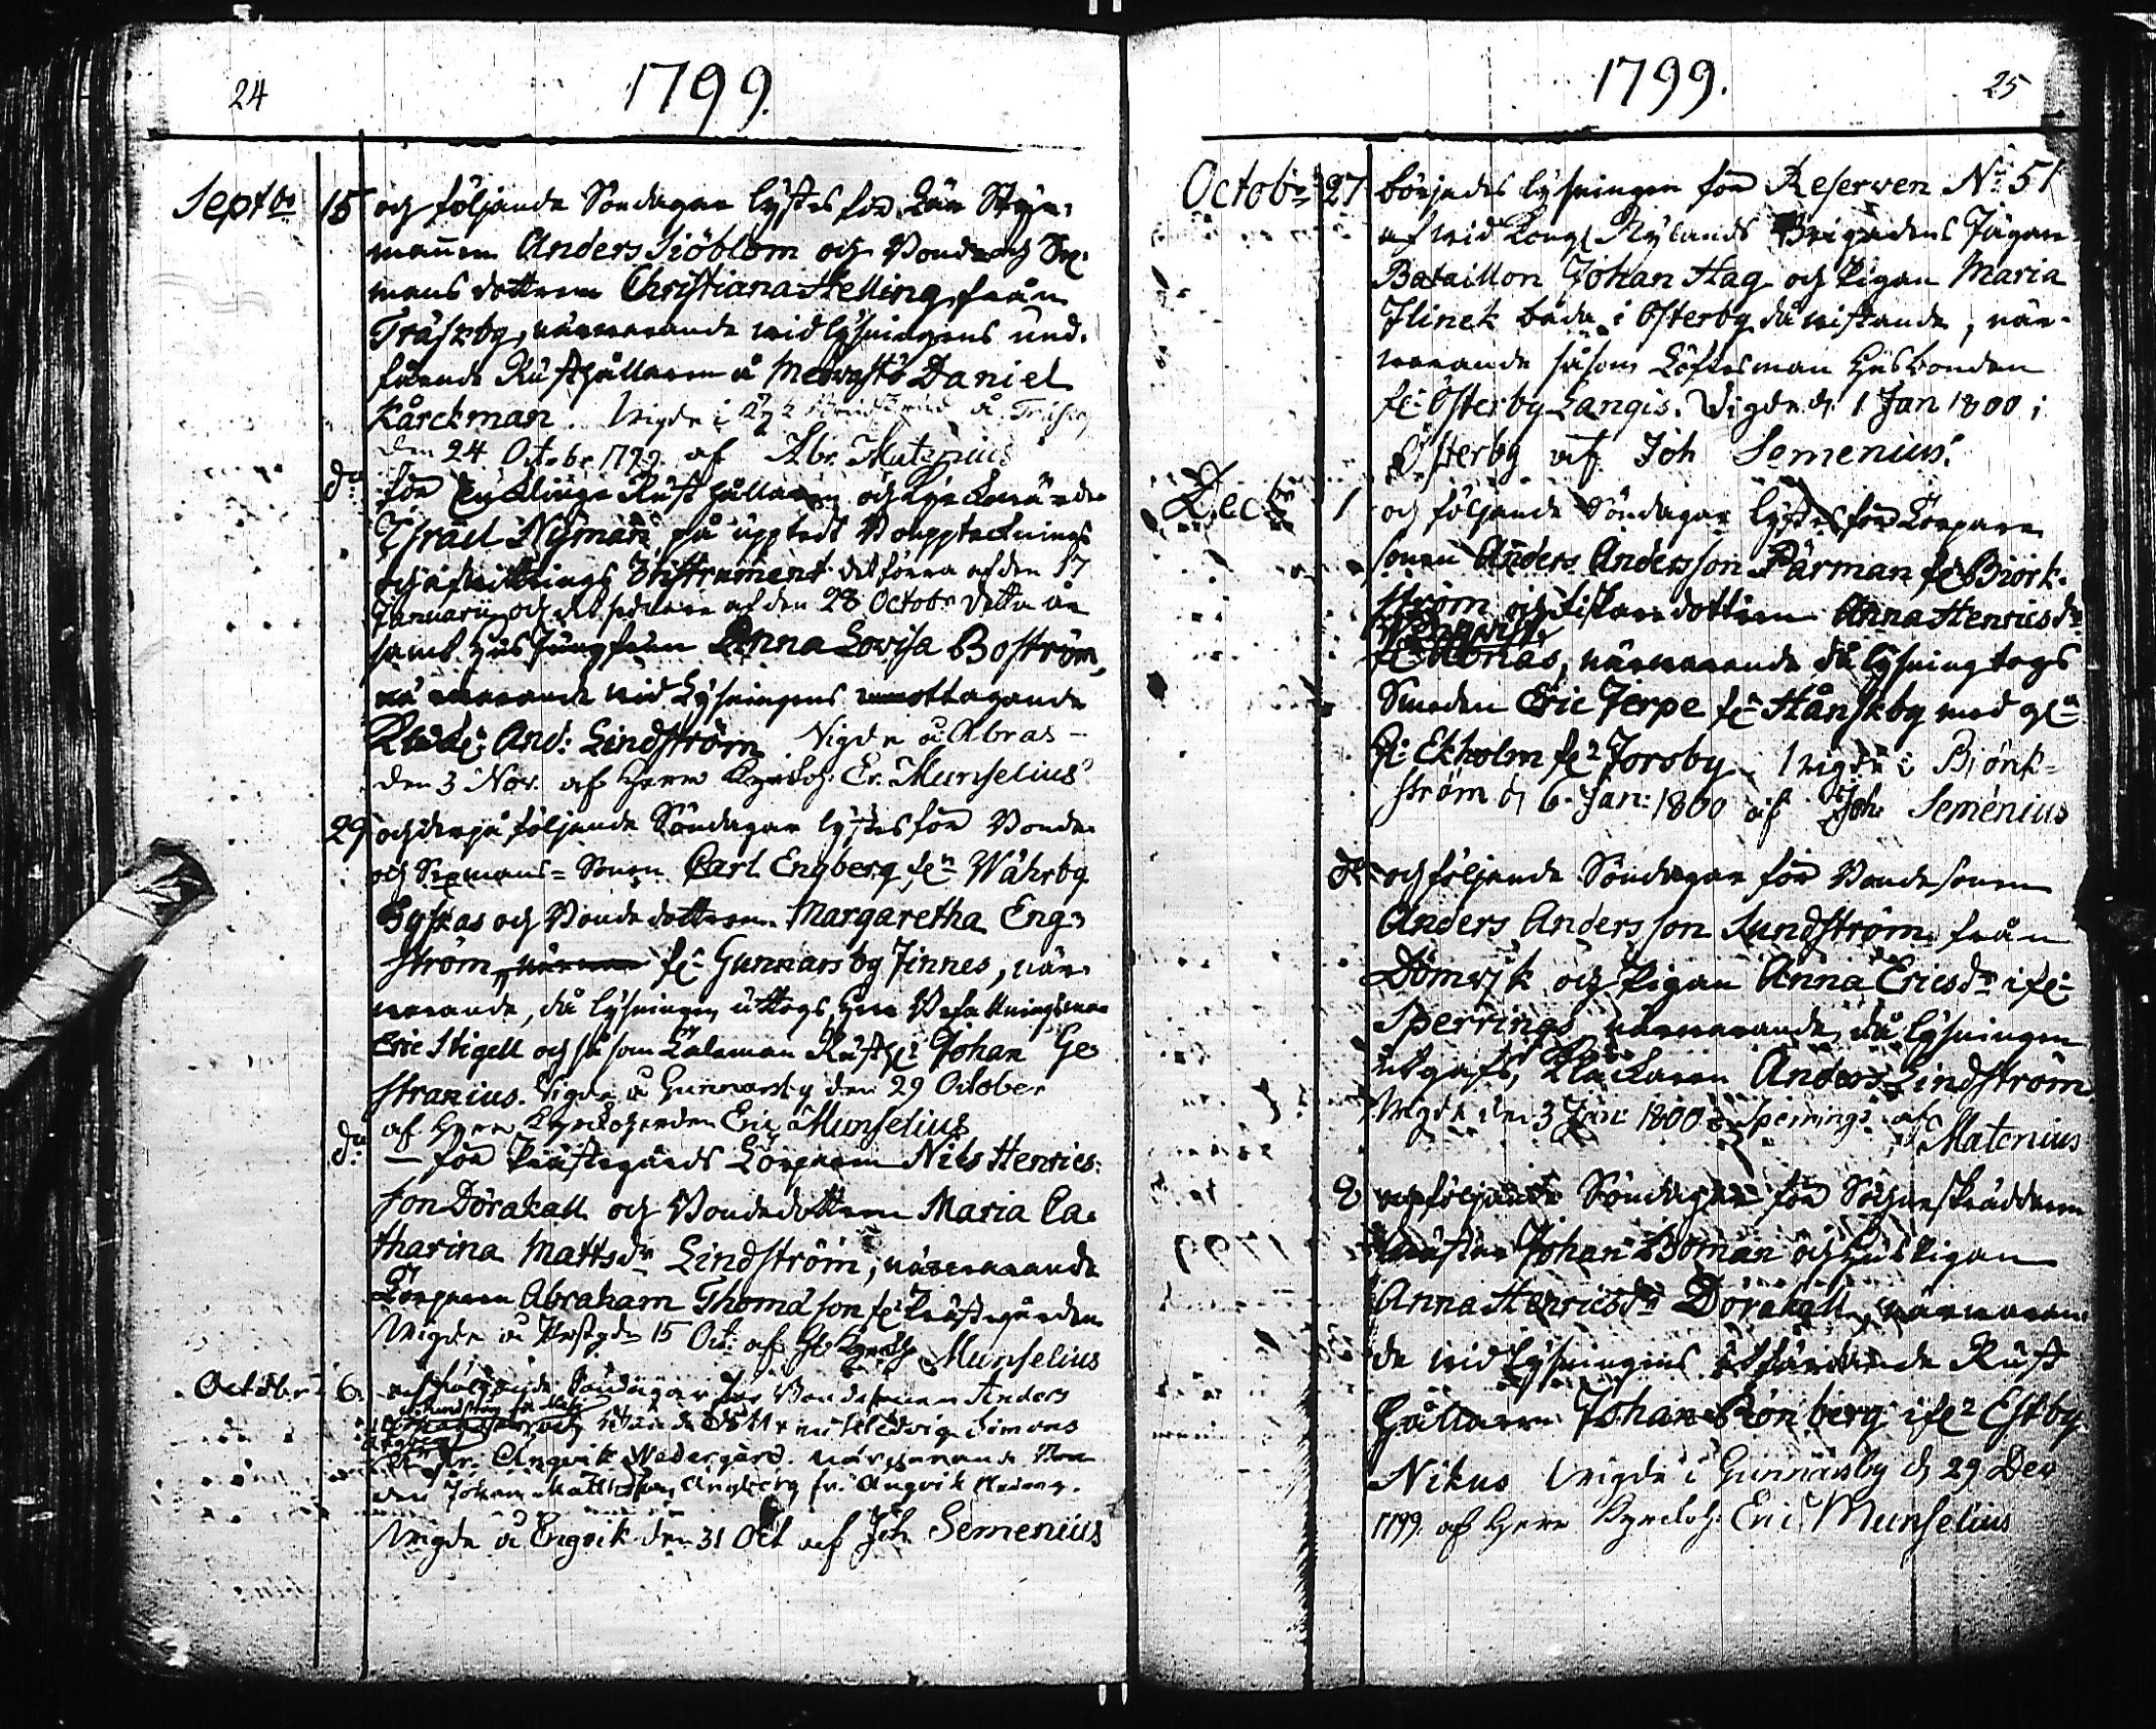 24
1799.
Septbr 15 och följande Söndagar lystes för Lär Styr-
mannen Anders Siöblom och Bonde och Sex-
mans dottren Christiana Helling från
Träskby, närvarande vid lysningens und-
fående Rusthållaren å Medvastö Daniel
Kårckman. Vigde i
den 24 Octobr 1799. af Abr. Matenius
do för Rusthållaren och
Israel Nyman på uppted Bouppteknings
och afvittrings Instrument det förra af den 17
Januarii och det sednare af den 28 Octobr detta år
samt Hus Jungfrun Anna Lovisa Boström,
närvarande vid Lysningens emottagande
And: Lindström Vigde å Abras
den 3 Nov. af Herr Kyrkoh: Er. Munselius
29 och derpå följande Söndagar lystes för Bonde
och Sexmans-Sonen Carl Engberg frn Wåhrby
Byskas och Bonde dottren Margaretha Eng-
ström, frn Gunnarsby Finnes, när-
varande, då lysningen uttogs, Herr Befallningsman
Eric Stigell och såsom Talaman Rusth: Johan Ge-
stranius. Vigde å Gunnarsby den 29 October
af Herr Kyrkoherden Eric Munselius
do – för Prästegårds Torparen Nils Henrics-
son Dörakall och Bondedottren Maria Ca-
tharina Mattsdr Lindström, närvarande
Torparen Abraham Thomasson frn Prästegården
Vigde å Prestg: den 15 Oct: af H Kyrkoh Munselius
October 6. och följande Söndagar för Bondesonen Anders
och Bonde Dottren Hedvig Simons
dr fr. Ängvik Nedergård. närvarande Bon-
den Johan Mattsson Ängberg fr. Ängvik
Vigde å Engvik den 31 Oct af Joh Semenius
1799.
25
Octobr 27 börjades lysningen för Reserven No 51
af vid Kongl Nylands Brigadens Jägare
Bataillon Johan Hag och Pigan Maria
Flinck båda i Österby då vistande, när-
varande såsom Löftesman Husbonden
frn Österby Langis. Vigde d. 1 Jan 1800 i
Österby af Joh Semenius.
Decbr 1 och följande Söndagar lystes för Torpare
sonen Anders Andersson Pärman frn Biörk-
ström och Fiskare dottren Anna Henricsdr
frn Åbnäs, närvarande då lysning togs
Smeden Eric Jerpe frn Hånskby med
Ekholm frn Joroby Vigde i Biörk-
ström d. 6. Jan: 1800 af Joh Semenius
do och följande Söndagar för Bondesonen
Anders Andersson Sundström från
Dömvjk och Pigan Anna Ericsdr ifrn
Sperrings närvarande då lysningen
utgafs, Klockaren Anders Lindström
Vigde den 3 Jan: 1800 å Sperrings af
Matenius
8 och följande Söndagar för Sockneskräddaren
mäster Johan Boman och Huspigan
Anna Henricsdr Dörakall, närvaran-
de vid Lysningens utfärdande Rust
hållaren Johan Grönberg ifrn Estby
Nikus Vigde i Gunnarsby d. 29 Dec
1799. af Herr Kyrkoh: Eric Munselius